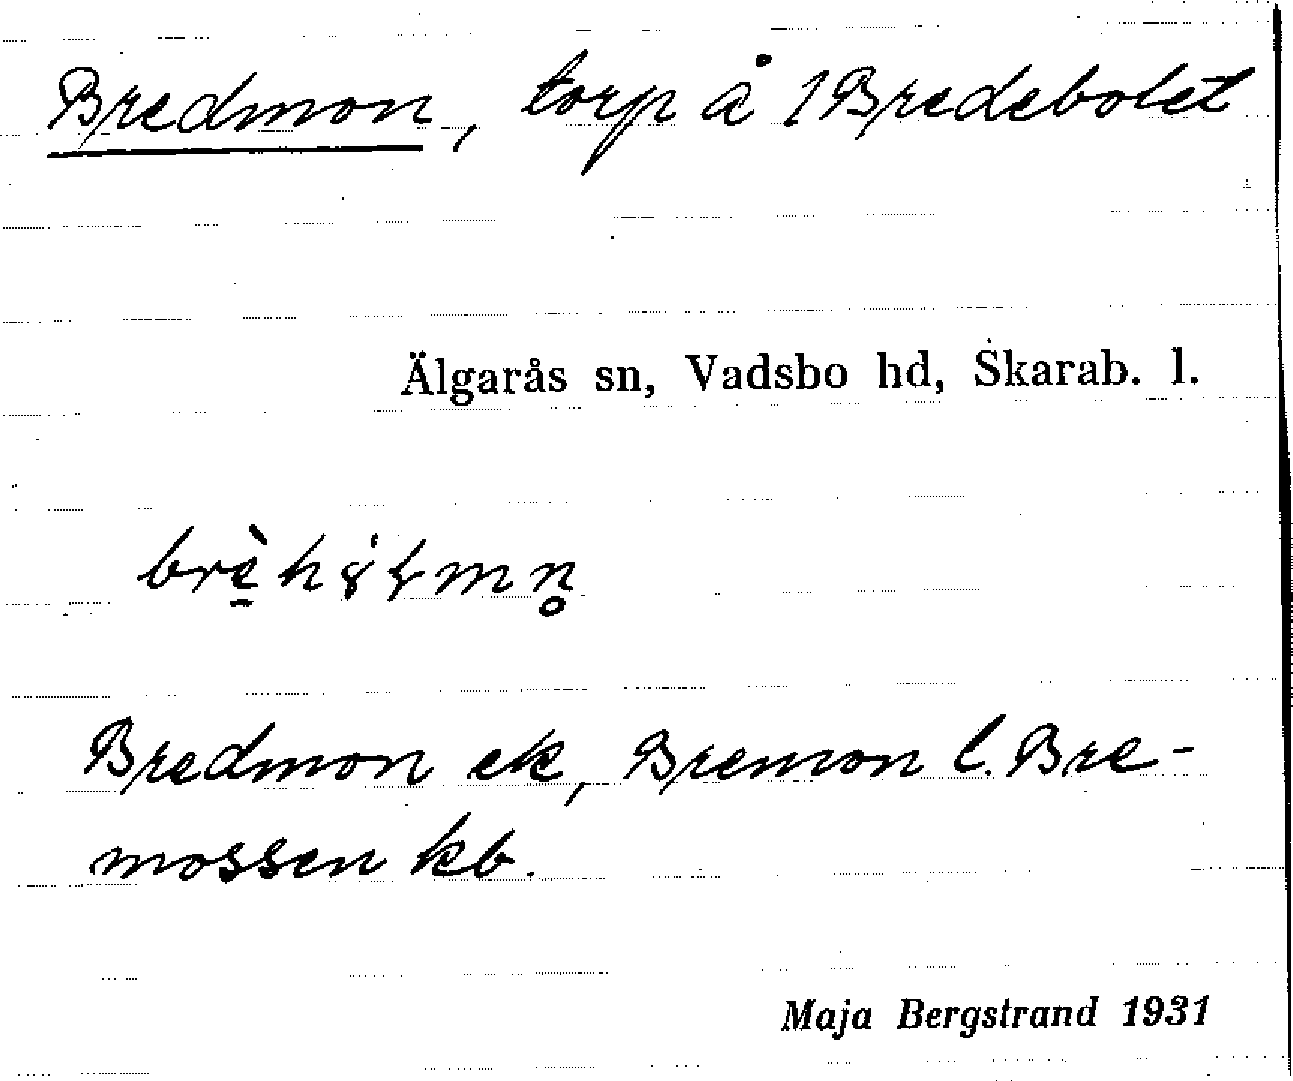 Bredmon, torp å 1 Bredebolet
Älgarås sn, Vadsbo hd, Skarab. l.
Bredmon ek, Bremon l. Bre-
mossen kb.
Maja Bergstrand 1931